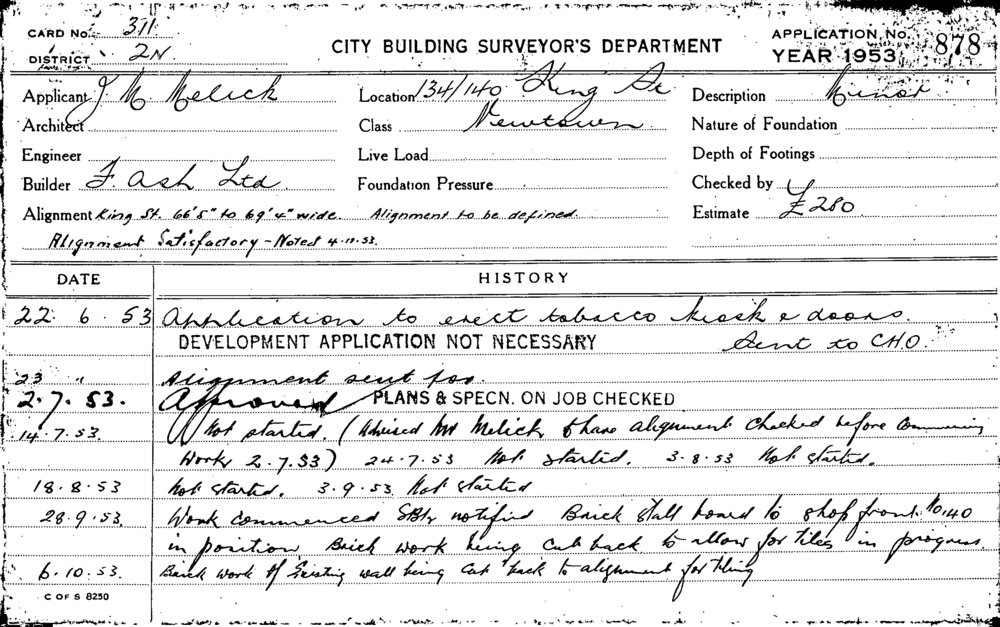 CARD No. 311
DISTRICT 2N
CITY BUILDING SURVEYOR'S DEPARTMENT
APPLICATION No. 878
YEAR 1953
Applicant J M Melick
Location 134/140 King St
Description Minor
Architect
Class Newtown
Nature of Foundation
Engineer
Live Load
Depth of Footings
Builder F. Ash Ltd
Foundation Pressure
Checked by
Alignment King St. 66'5" to 69'4" wide. Alignment to be defined.
Estimate £280
Alignment Satisfactory - Noted 4.11.53.
DATE HISTORY
22. 6. 53 Application to erect tobacco kiosk & doors.
DEVELOPMENT APPLICATION NOT NECESSARY Sent to CHO.
23 " Alignment sent for.
2.7.53. Approved PLANS & SPECN. ON JOB CHECKED
14.7.53. Not started. (Advised Mr Melick to have alignment checked before commencing
Work 2.7.53) 24.7.53 Not started. 3.8.53 Not started.
18.8.53 Not started. 3.9.53 Not started
28.9.53. Work commenced notified Brick stall board to shop front No.140
in position. Brick work being cut back to allow for tiles in progress.
6.10.53. Brick work of existing wall being cut back to alignment for tiling
C OF S 8250